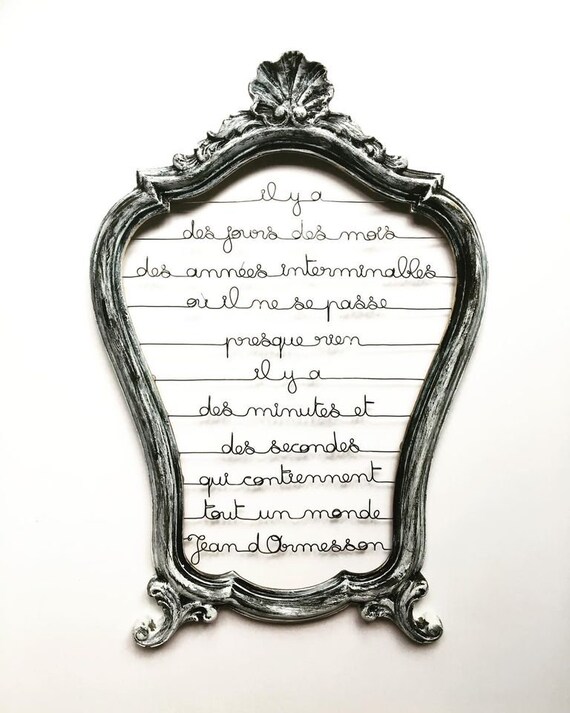 il y a
des jours des mois
des années interminables
où il ne se passe
presque rien
il y a
des minutes et
des secondes
qui contiennent
tout un monde
Jean d'Ormesson